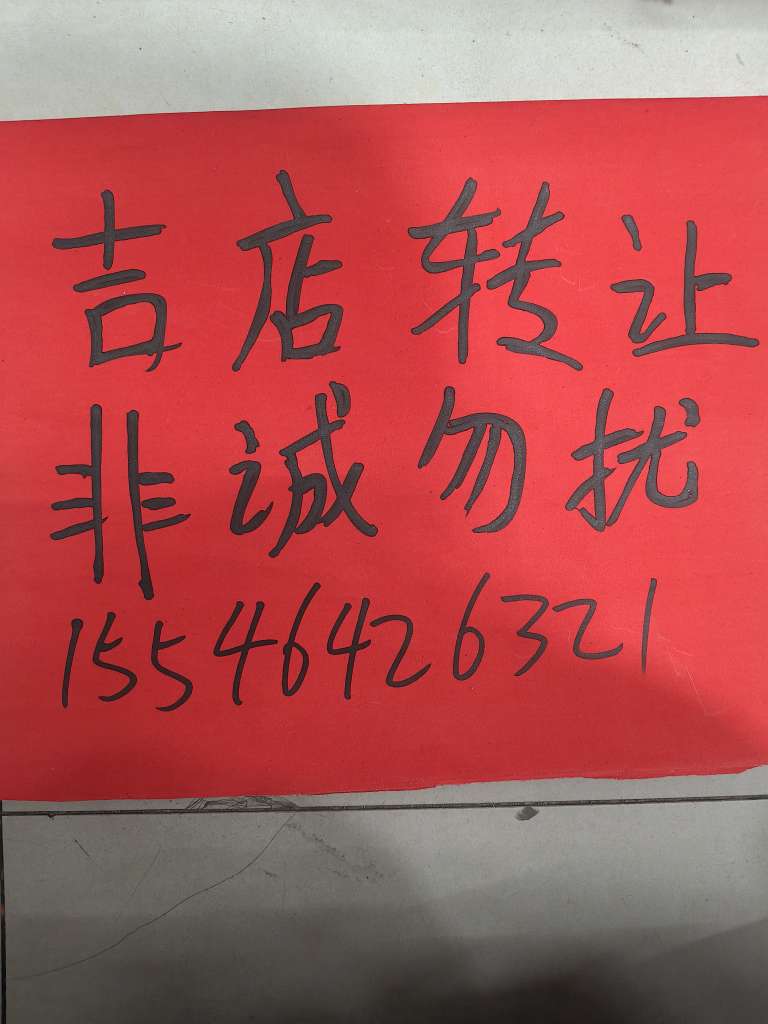 吉店转让
非诚勿扰
15546426321